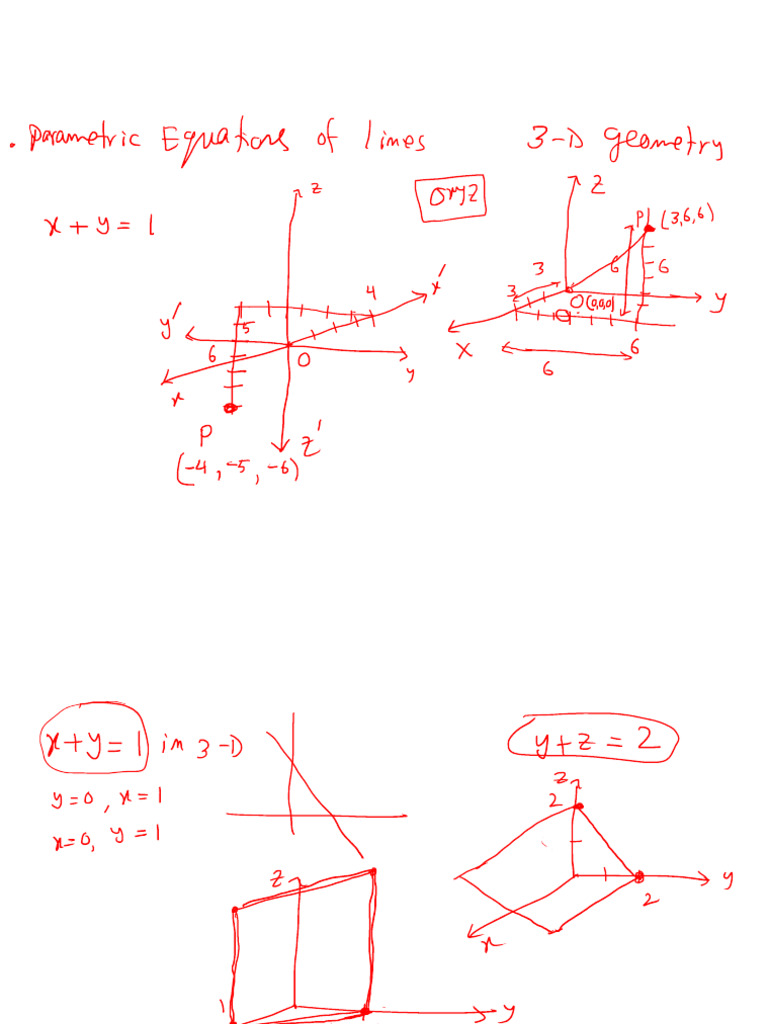 . Parametric Equations of lines
3-D geometry
x + y = 1
Oxyz
z
x'
4
y'
5
6
O
y
x
P
z'
(-4, -5, -6)
z
P (3,6,6)
3
6
6
3
O(0,0,0)
y
x
6
6
x+y=1 in 3-D
y=0, x=1
x=0, y=1
y+z=2
z
2
y
2
x
z
1
y